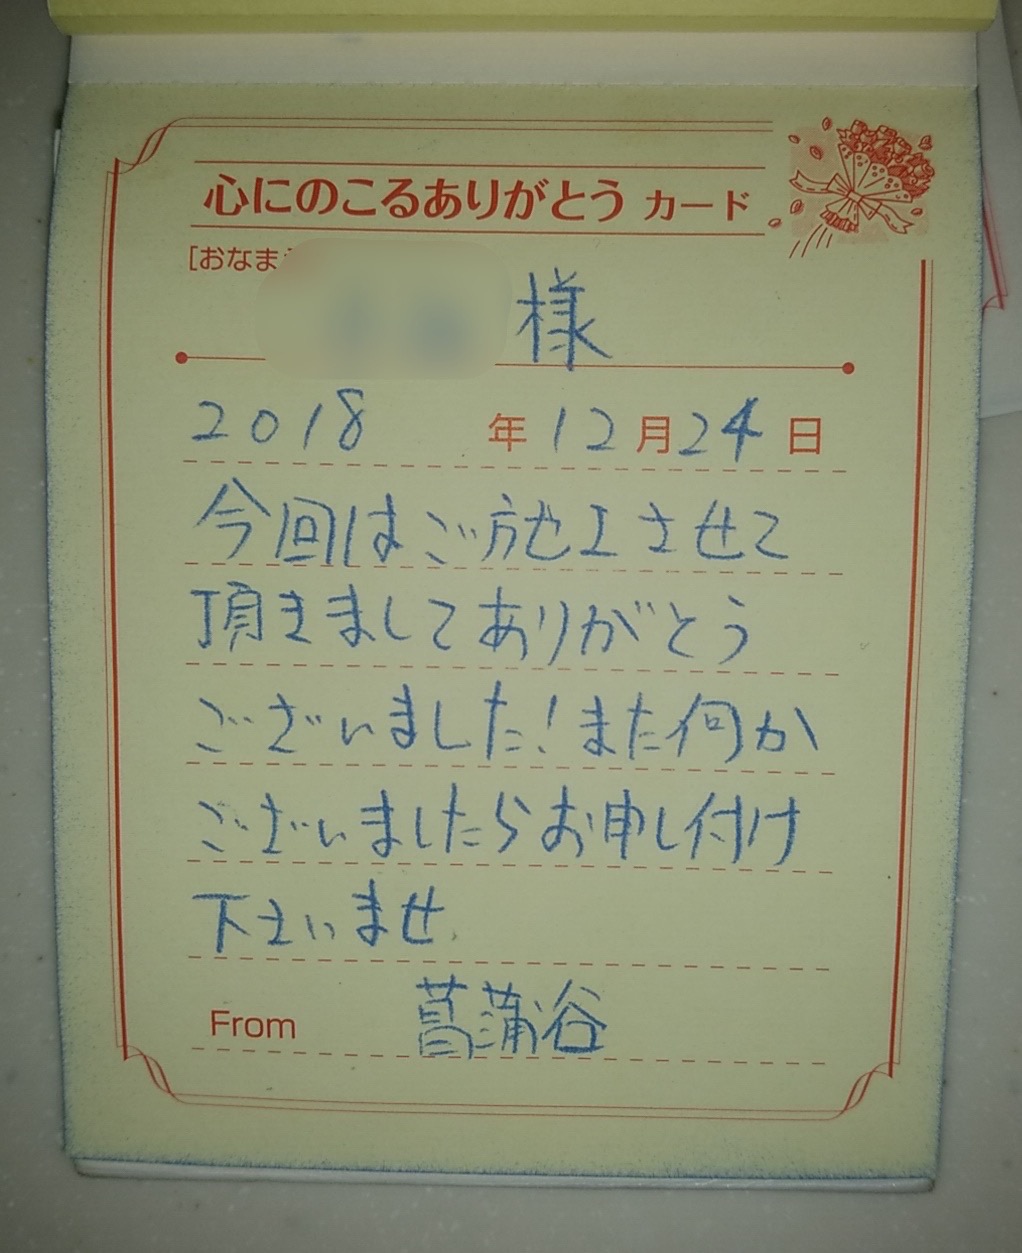 心にのこるありがとう カード
[おなま
様
2018 年 12 月 24 日
今回はご施工させて
頂きましてありがとう
ございました!また何か
ございましたらお申し付け
下さいませ.
From 菖蒲谷